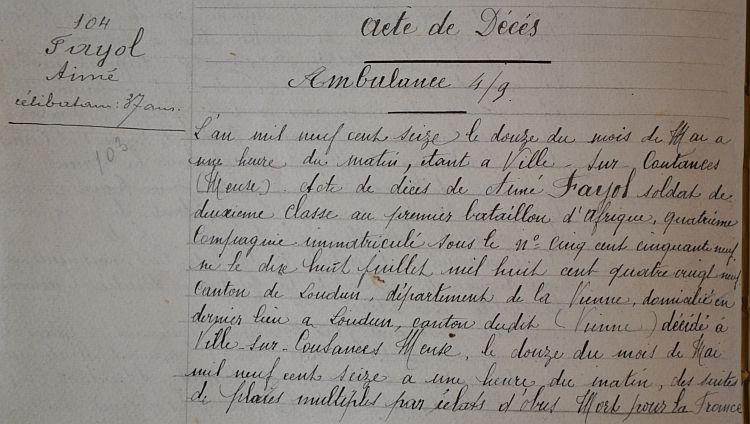 104
Fayol
Aimé
célibataire: 37 ans.
103
Acte de Décès
Ambulance 4/9.
L'an mil neuf cent seize le douze du mois de Mai a
une heure du matin, étant a Ville-sur-Cousances
(Meuse). Acte de dices de Aimé Fayol soldat de
deuxième classe au premier bataillon d'Afrique, quatrième
Compagnie immatriculé sous le n° cinq cent cinquante neuf
ne le dix huit juillet mil huit cent quatre vingt neuf
canton de Loudun, département de la Vienne, domicilié en
dernier lieu a Loudun, canton dudit (Vienne) décidé à
Ville-sur-Cousances Meuse, le douze du mois de Mai
mil neuf cent seize a une heure du matin, des suites
de plaies multiples par éclats d'obus Mort pour la France